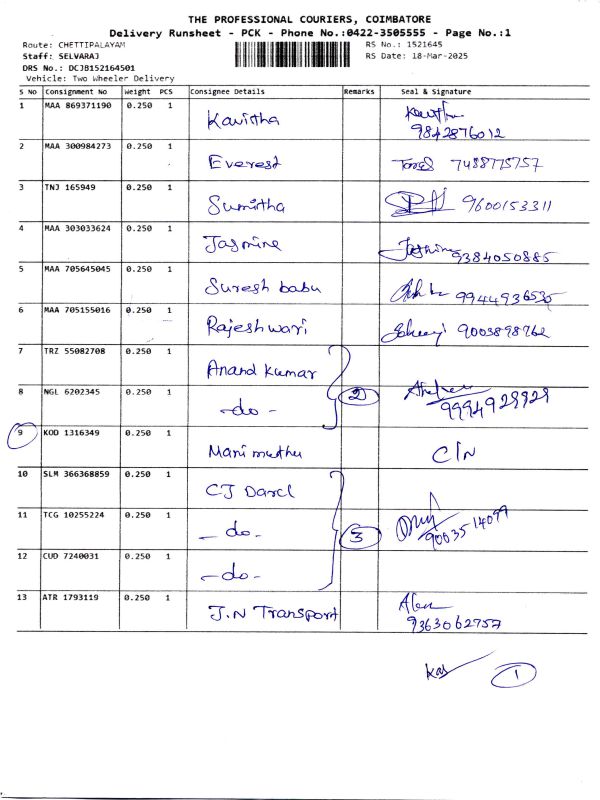 THE PROFESSIONAL COURIERS, COIMBATORE
Delivery Runsheet - PCK - Phone No.:0422-3505555 - Page No.:1
Route: CHETTIPALAYAM RS No.: 1521645
Staff: SELVARAJ RS Date: 18-Mar-2025
DRS No.: DCJB152164501
Vehicle: Two Wheeler Delivery
S No Consignment No Weight PCS Consignee Details Remarks Seal & Signature
1 MAA 869371190 0.250 1 Kavitha
9842876012
2 MAA 300984273 0.250 1 Everest 7488775757
3 TNJ 165949 0.250 1 Sumitha 9600153311
4 MAA 303033624 0.250 1 Jasmine Jasmine 9384050885
5 MAA 705645045 0.250 1 Suresh babu 9944936535
6 MAA 705155016 0.250 1 Rajeshwari 9003898762
7 TRZ 55082708 0.250 1 Anand Kumar
8 NGL 6202345 0.250 1 -do- 2 9994929929
9 KOD 1316349 0.250 1 Mani muthu C/N
10 SLM 366368859 0.250 1 CJ Darcl
11 TCG 10255224 0.250 1 -do- 3 9003514099
12 CUD 7240031 0.250 1 -do-
13 ATR 1793119 0.250 1 J.N Transport
9363062757
1